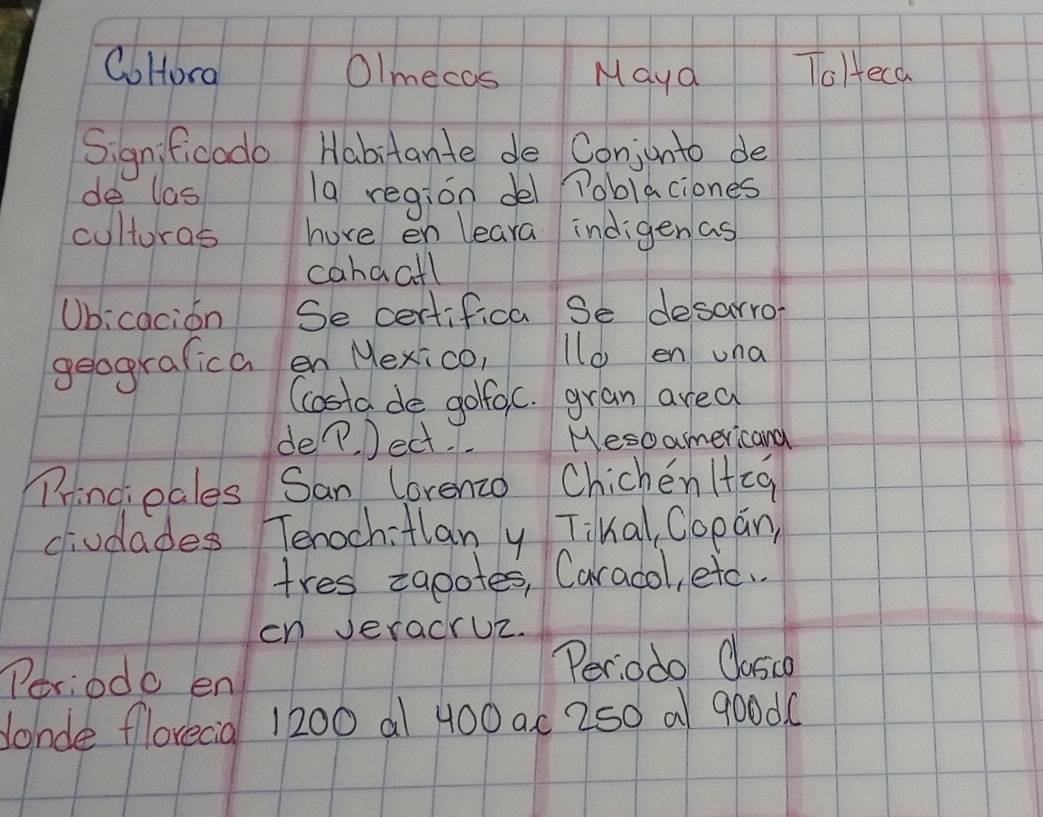 Cultura Olmecas Maya Tolteca
Significado Habitante de Conjunto de
de las la región del Poblaciones
culturas hure en leara indigenas
cahaatl
Ubicación Se certifica Se desarro-
geografica en Mexico, llo en una
(costa de golfo,c. gran area
de P.) ect... Mesoamericana
Principales San Lorenzo Chichén Itzá
ciudades Tenochitlan y Tikal, Copán,
tres zapotes, Caracol, etc..
en veracruz.
Periodo en Periodo Clasico
donde florecia 1200 al 400 ac 250 al 900 dC